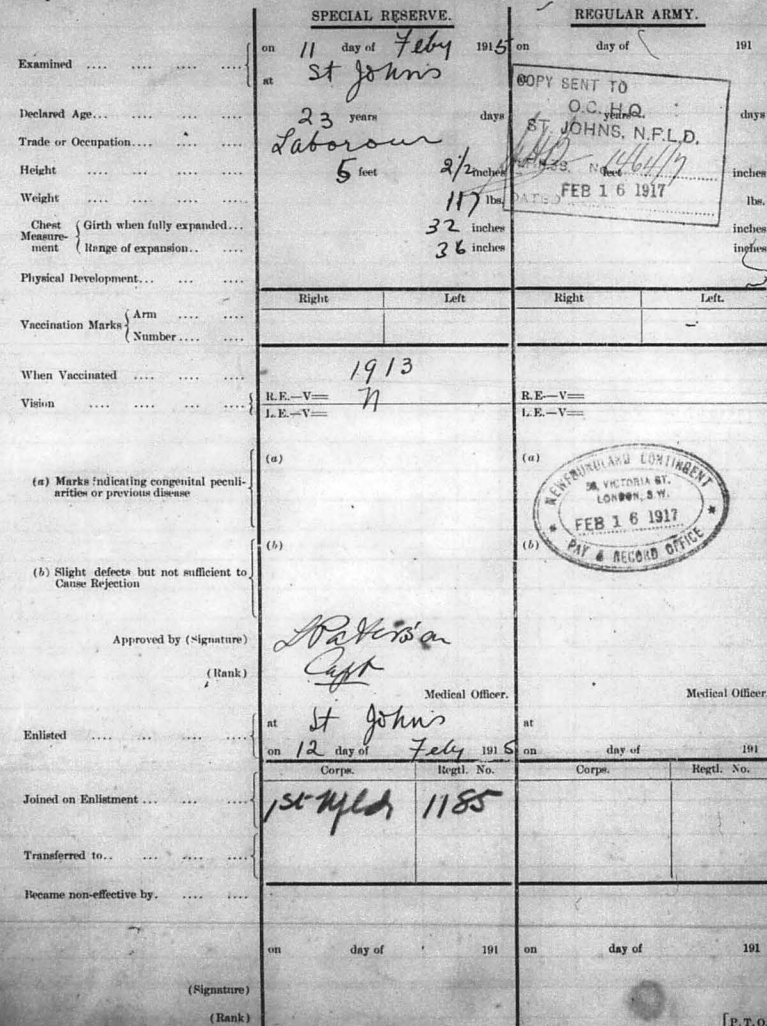 SPECIAL RESERVE. REGULAR ARMY.
Examined .... .... .... .... on 11 day of Feby 1915 on day of 191
at St Johns
COPY SENT TO
O.C. H.Q.
ST. JOHNS, N.F.L.D.
FEB 16 1917
Declared Age... .... .... .... 23 years days years days
Trade or Occupation... .... .... Labourour
Height .... .... .... .... 5 feet 2 1/2 inches feet inches
Weight .... .... .... .... 117 lbs. lbs.
Chest Measurement { Girth when fully expanded... 32 inches inches
Range of expansion.. .... 36 inches inches
Physical Development... ... .... ....
Right Left Right Left.
Vaccination Marks { Arm .... ....
Number .... ....
When Vaccinated .... .... .... 1913
Vision .... .... .... .... R.E.—V= N R.E.—V=
L.E.—V= L.E.—V=
(a) Marks indicating congenital peculi-
arities or previous disease
(a) (a)
NEWFOUNDLAND CONTINGENT
58, VICTORIA ST.
LONDON, S.W.
FEB 16 1917
PAY & RECORD OFFICE
(b) Slight defects but not sufficient to
Cause Rejection
(b) (b)
Approved by (Signature) Paterson
(Rank) Capt
Medical Officer. Medical Officer
Enlisted .... .... .... .... at St Johns at
on 12 day of Feby 1915 on day of 191
Corps. Regtl. No. Corps. Regtl. No.
Joined on Enlistment ... .... .... 1st Nfld 1185
Transferred to.. .... .... ....
Became non-effective by. .... ....
on day of 191 on day of 191
(Signature)
(Rank)
[P.T.O